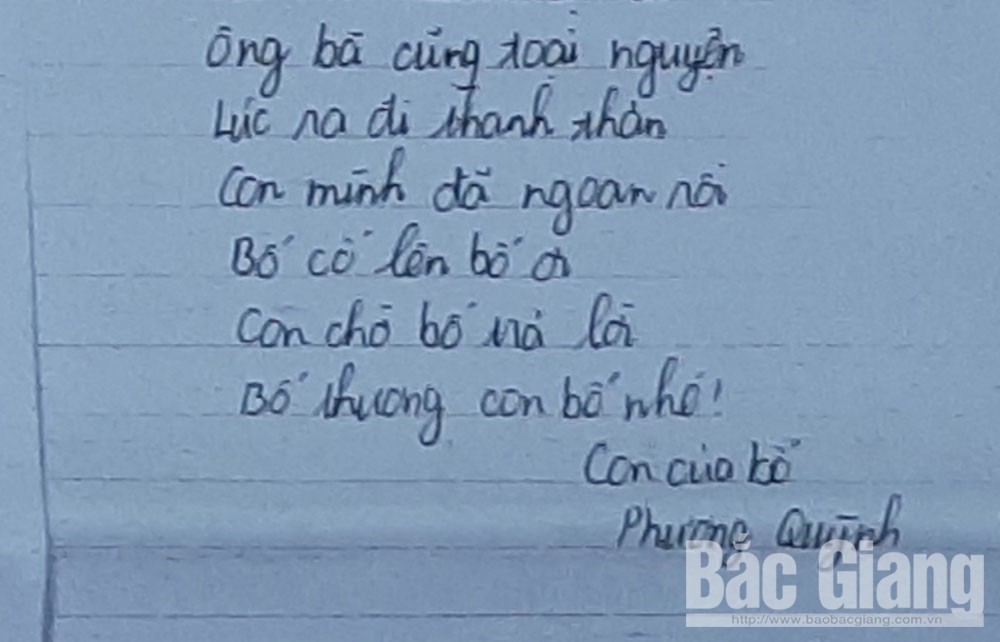 Ông bà cũng toại nguyện
Lúc ra đi thanh thản
Con mình đã ngoan rồi
Bố cố lên bố ơi
Con chờ bố trả lời
Bố thương con bố nhé!
Con của bố
Phương Quỳnh
Bắc Giang
http://www.baobacgiang.com.vn